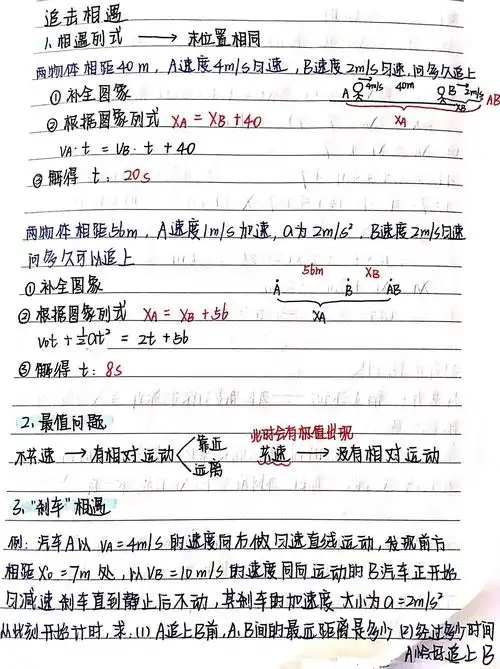 追击相遇
1.相遇列式 → 末位置相同
两物体相距40m，A速度4m/s匀速，B速度2m/s匀速，问多久追上
①补全图象
A 4m/s 40m B 2m/s XB AB
②根据图象列式 XA = XB + 40
XA
VA·t = VB·t + 40
③解得 t: 20s
两物体相距56m，A速度1m/s加速，a为2m/s²，B速度2m/s匀速
问多久可以追上
56m XB
①补全图象
A B AB
②根据图象列式 XA = XB + 56
XA
v0t + ½at² = 2t + 56
③解得 t: 8s
2.最值问题
此时会有极值出现
不共速 → 有相对运动 < 靠近 远离
共速 → 没有相对运动
3."刹车"相遇
例: 汽车A以 VA = 4m/s 的速度向右做匀速直线运动，发现前方
相距 X0 = 7m 处，以 VB = 10m/s 的速度同向运动的B汽车正开始
匀减速刹车直到静止后不动，其刹车的加速度大小为 a = 2m/s²
从此刻开始计时，求: (1) A追上B前，A、B间的最远距离是多少 (2)经过多少时间
A恰好追上B